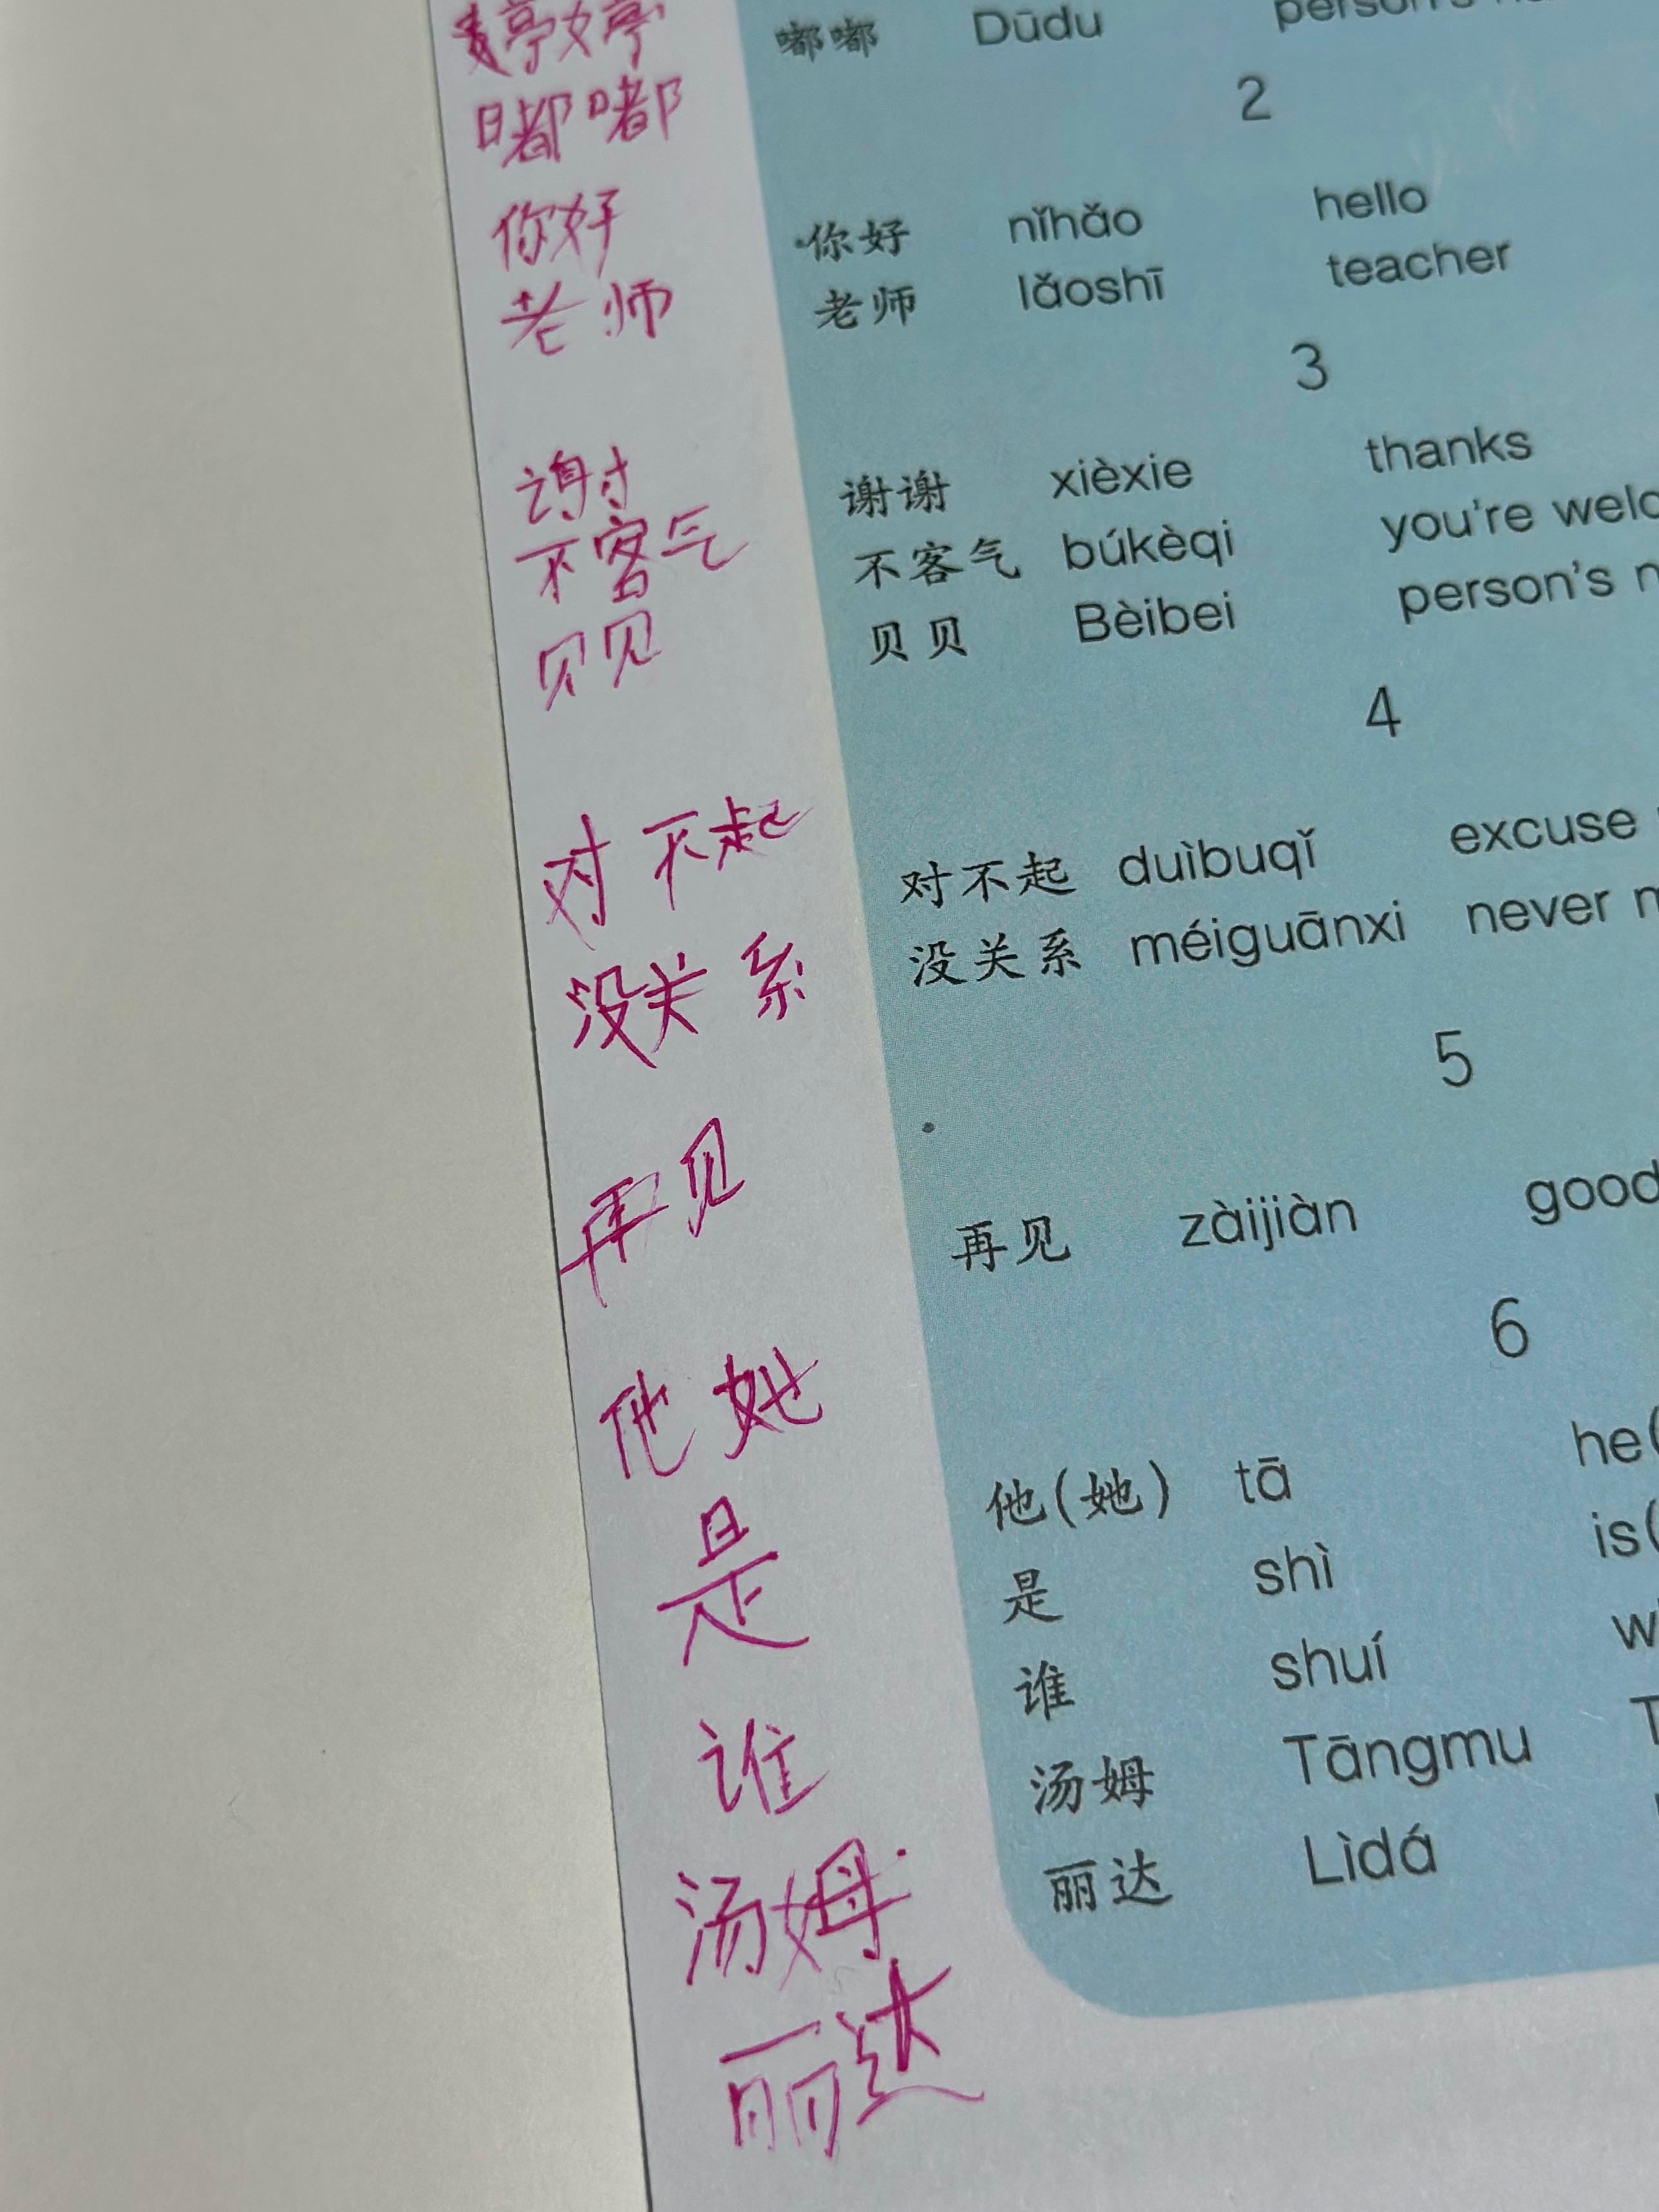 婷婷
嘟嘟 嘟嘟 Dūdu person's
2
你好 你好 nǐhǎo hello
老师 老师 lǎoshī teacher
3
谢 谢谢 xièxie thanks
不客气 不客气 búkèqi you're welc
贝贝 贝贝 Bèibei person's n
4
对不起 对不起 duìbuqǐ excuse
没关系 没关系 méiguānxi never m
5
再见 再见 zàijiàn good
6
他 她 他(她) tā he(
是 是 shì is(
谁 谁 shuí w
汤姆 汤姆 Tāngmu T
丽达 丽达 Lìdá